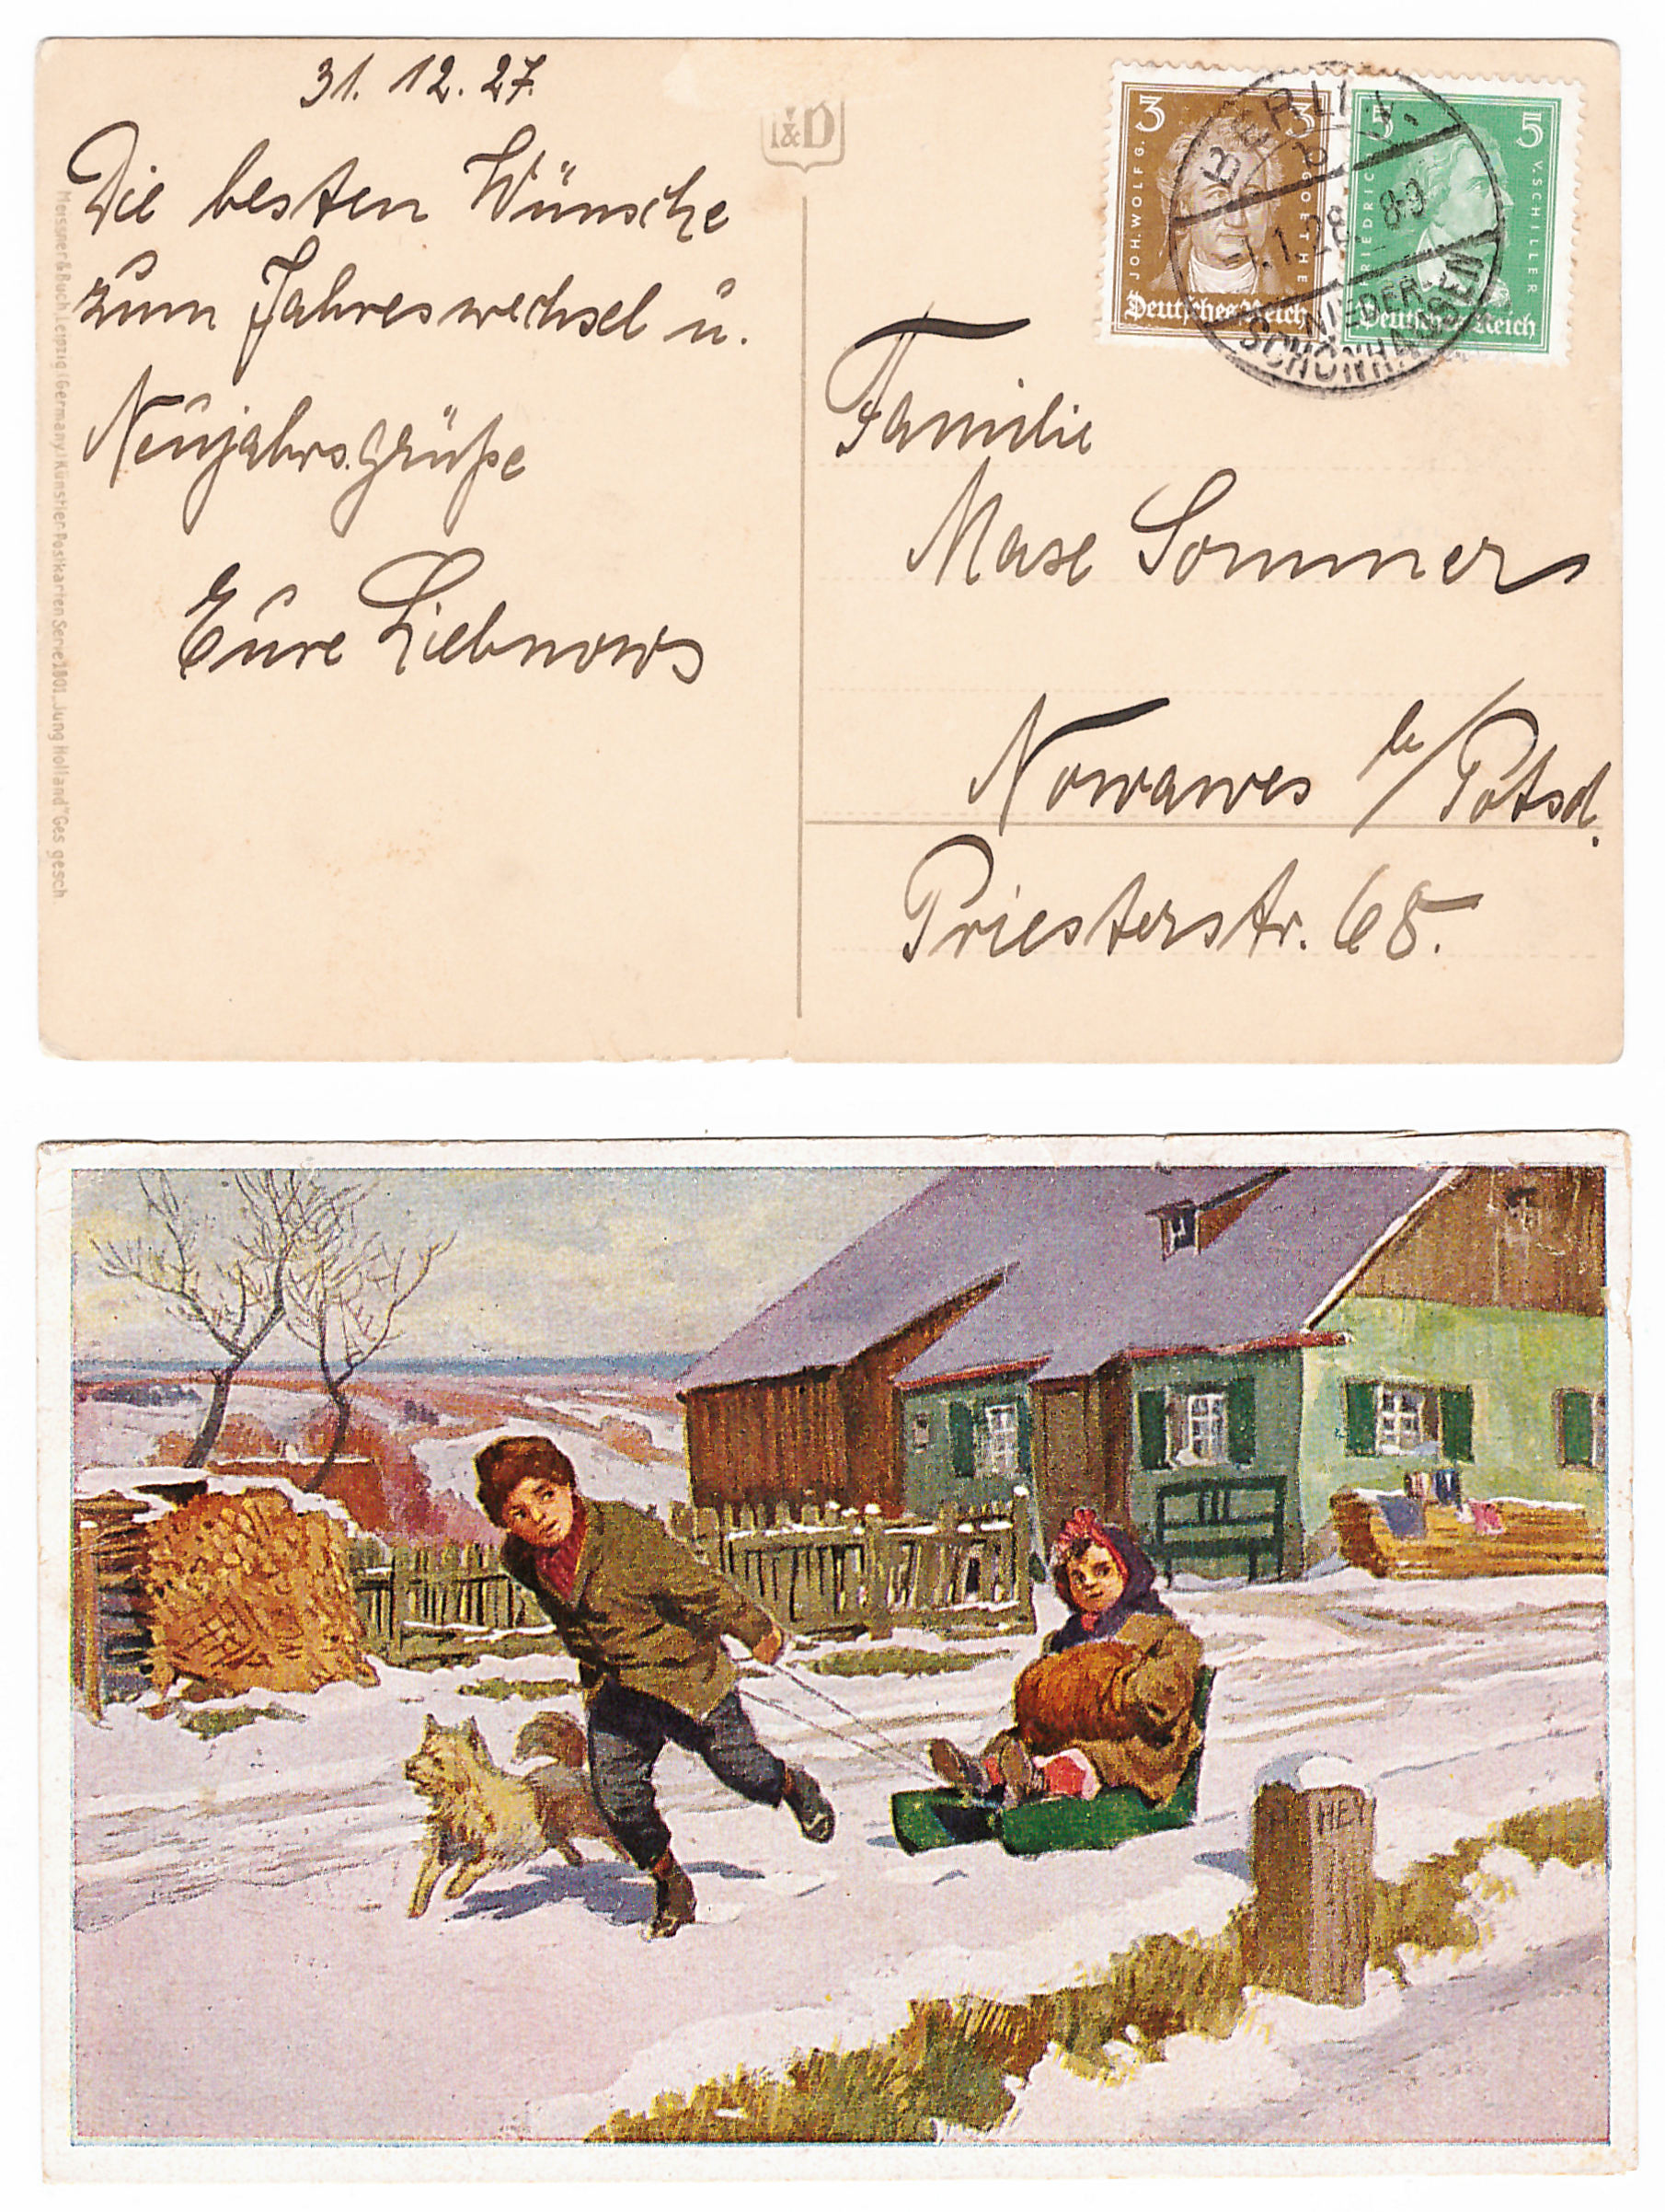 31. 12. 27.
Die besten Wünsche
zum Jahreswechsel u.
Neujahrsgrüße
Eure Liebnows
Meissner & Buch, Leipzig (Germany) Künstler-Postkarten Serie 1801 „Jung Holland" Ges gesch
3 3
JOH. WOLFG. V. GOETHE
Deutsches Reich
5 5
FRIEDRICH V. SCHILLER
Deutsches Reich
BERLIN
1.1.28. 8-9
NIEDER-
SCHÖNHAUSEN
Familie
Sommer
Nowawes b/Potsd.
Priesterstr. 68.
HEY